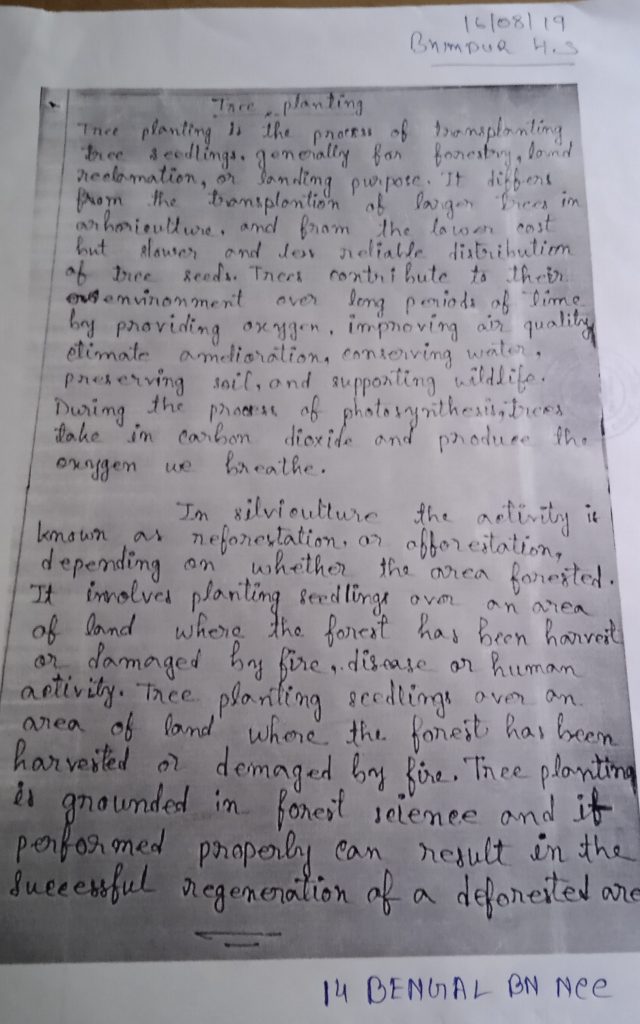 16/08/19
Bnmpur H.S
Tree planting
Tree planting is the process of transplanting
tree seedlings. generally for forestry, land
reclamation, or landing purpose. It differs
from the transplantion of larger trees in
arhoriculture. and from the lower cost
but slower and less reliable distribution
of tree seeds. Trees contribute to their
environment over long periods of time
by providing oxygen, improving air quality
climate amelioration, conserving water,
preserving soil, and supporting wildlife.
During the process of photosynthesis, trees
take in carbon dioxide and produce the
oxygen we breathe.
In silviculture the activity is
known as reforestation. or afforestation,
depending on whether the area forested.
It involves planting seedlings over an area
of land where the forest has been harvest
or damaged by fire, disease or human
activity. Tree planting seedlings over an
area of land where the forest has been
harvested or demaged by fire. Tree planting
is grounded in forest science and if
performed properly can result in the
successful regeneration of a deforested are
14 BENGAL BN NCC